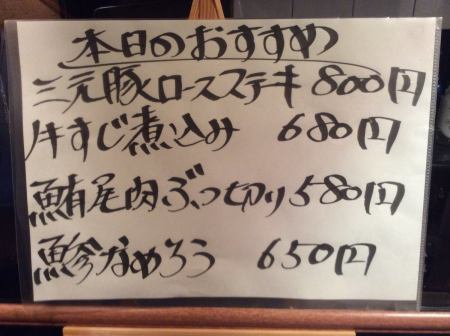 本日のおすすめ
三元豚ロースステキ 800円
牛すじ煮込み 680円
鮪尾肉ぶつ切り 580円
鯵なめろう 650円